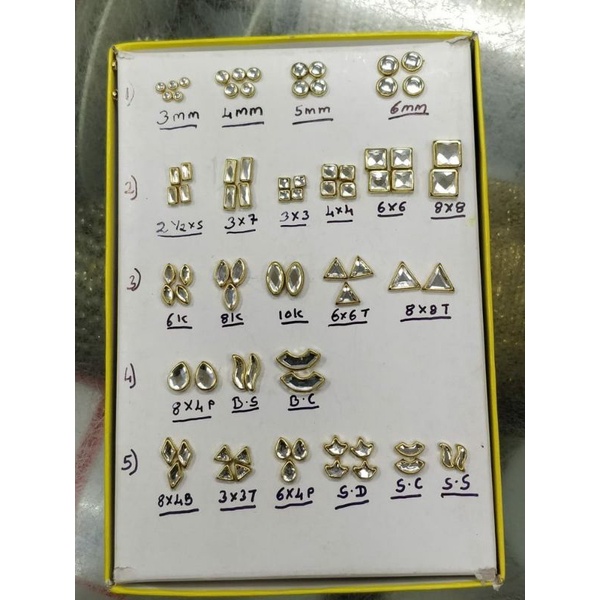 1) 3mm 4mm 5mm 6mm
2) 2 1/2 x 5 3x7 3x3 4x4 6x6 8x8
3) 6K 8K 10K 6x6T 8x8T
4) 8x4P B.S B.C
5) 8x4B 3x3T 6x4P S.D S.C S.S